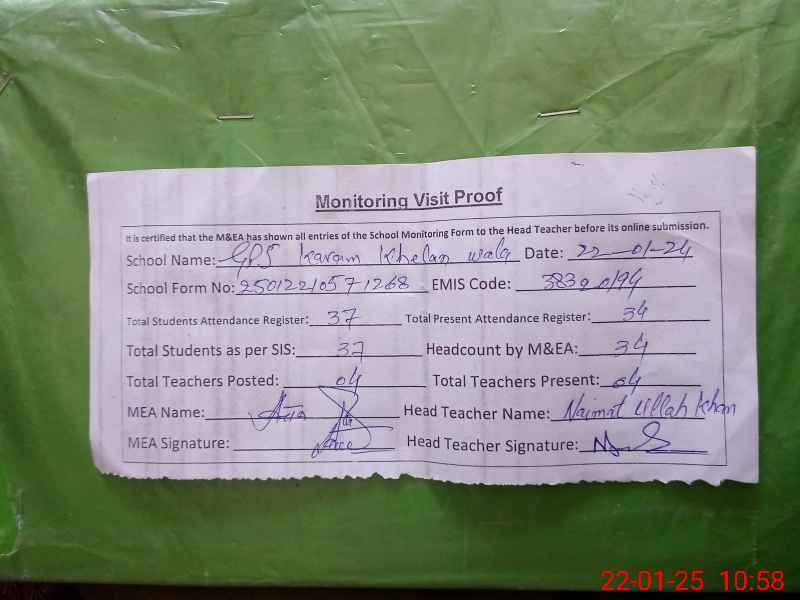 Monitoring Visit Proof
It is certified that the M&EA has shown all entries of the School Monitoring Form to the Head Teacher before its online submission.
School Name: GPS Karam Khelan wala Date: 22-01-24
School Form No: 25012210571268 EMIS Code: 38320194
Total Students Attendance Register: 37 Total Present Attendance Register: 34
Total Students as per SIS: 37 Headcount by M&EA: 34
Total Teachers Posted: 04 Total Teachers Present: 04
MEA Name: Head Teacher Name: Naimat Ullah Khan
MEA Signature: Head Teacher Signature:
22-01-25 10:58